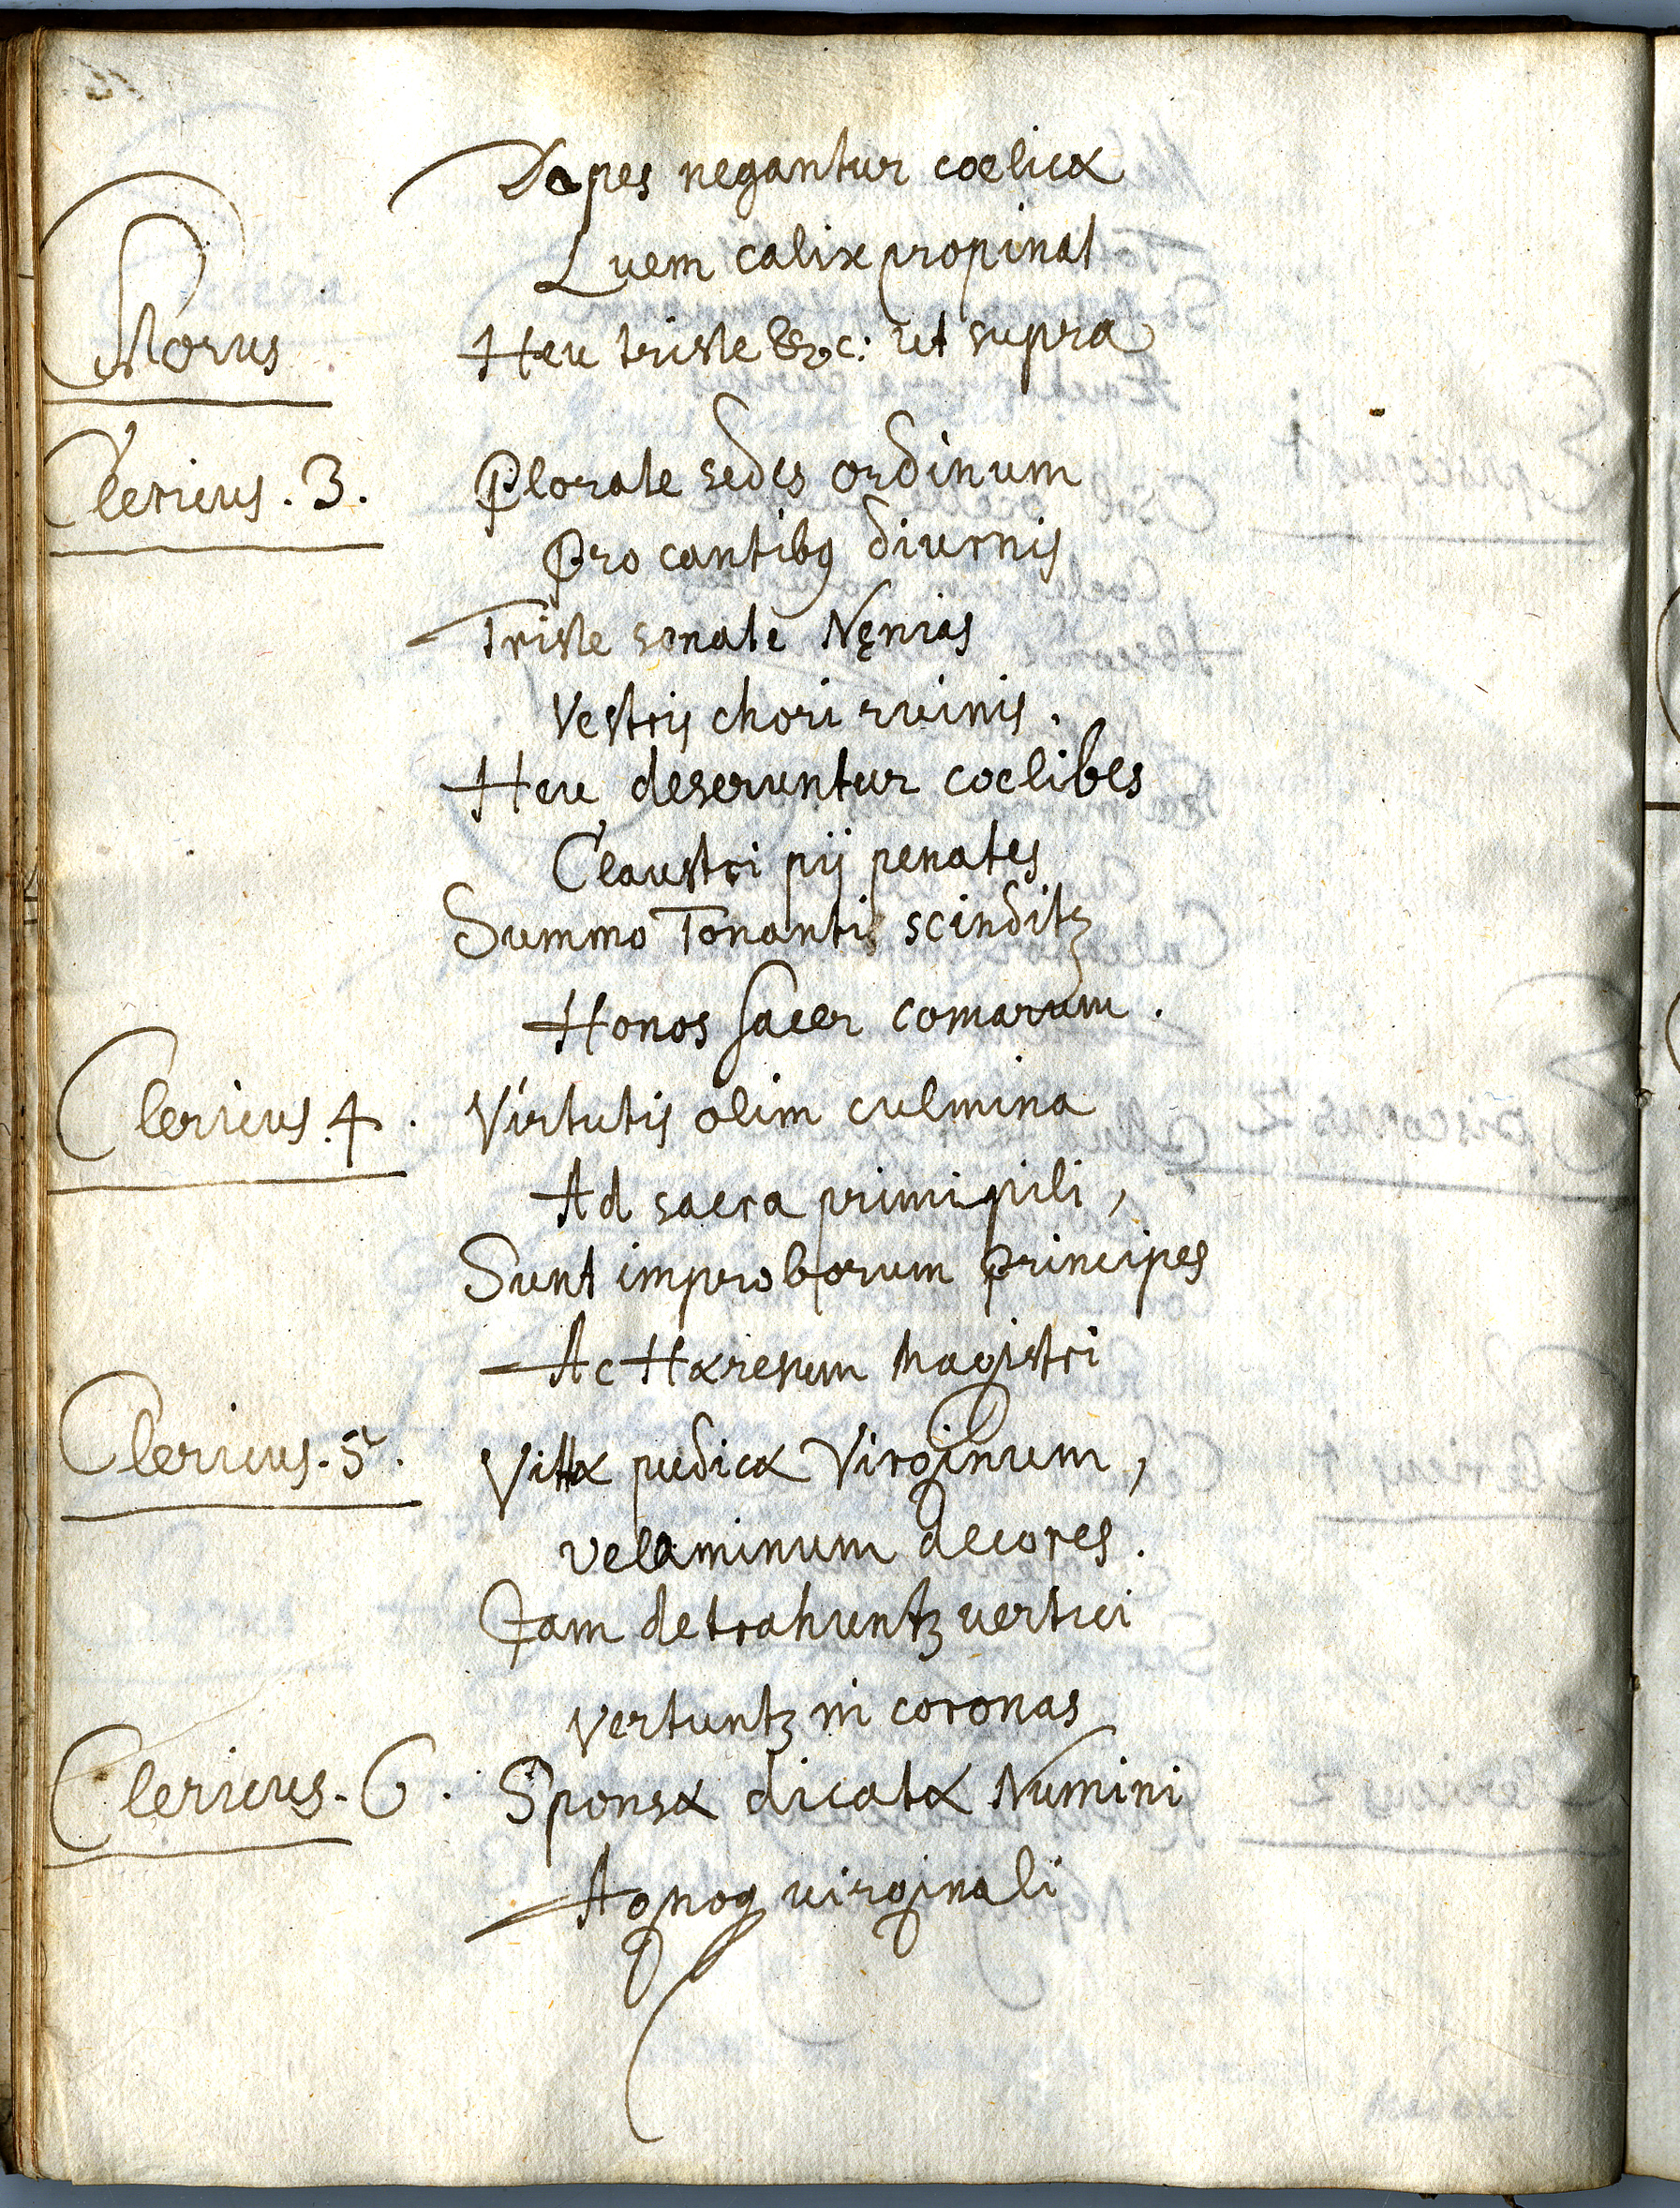 Dapes negantur coelicæ
Luem calix propinat
Chorus Heu triste &c: ut supra
Clericus. 3. Plorate sedes ordinum
Pro cantibꝰ diurnis
Triste sonate Nęnias
Vestris chori ruinis.
Heu deseruntur coelibes
Claustri pij penates
Summo Tonanti scinditꝫ
Honos sacer comarum.
Clericus. 4. Virtutis olim culmina
Ad sacra primipili,
Sunt improborum Principes
Ac Hæresum Magistri
Clericus. 5. Vittæ pudicæ Virginum,
velaminum decores.
Iam detrahuntꝫ vertici
Vertuntꝫ in coronas
Clericus. 6. Sponsæ dicatæ Numini
Agnoq virginali